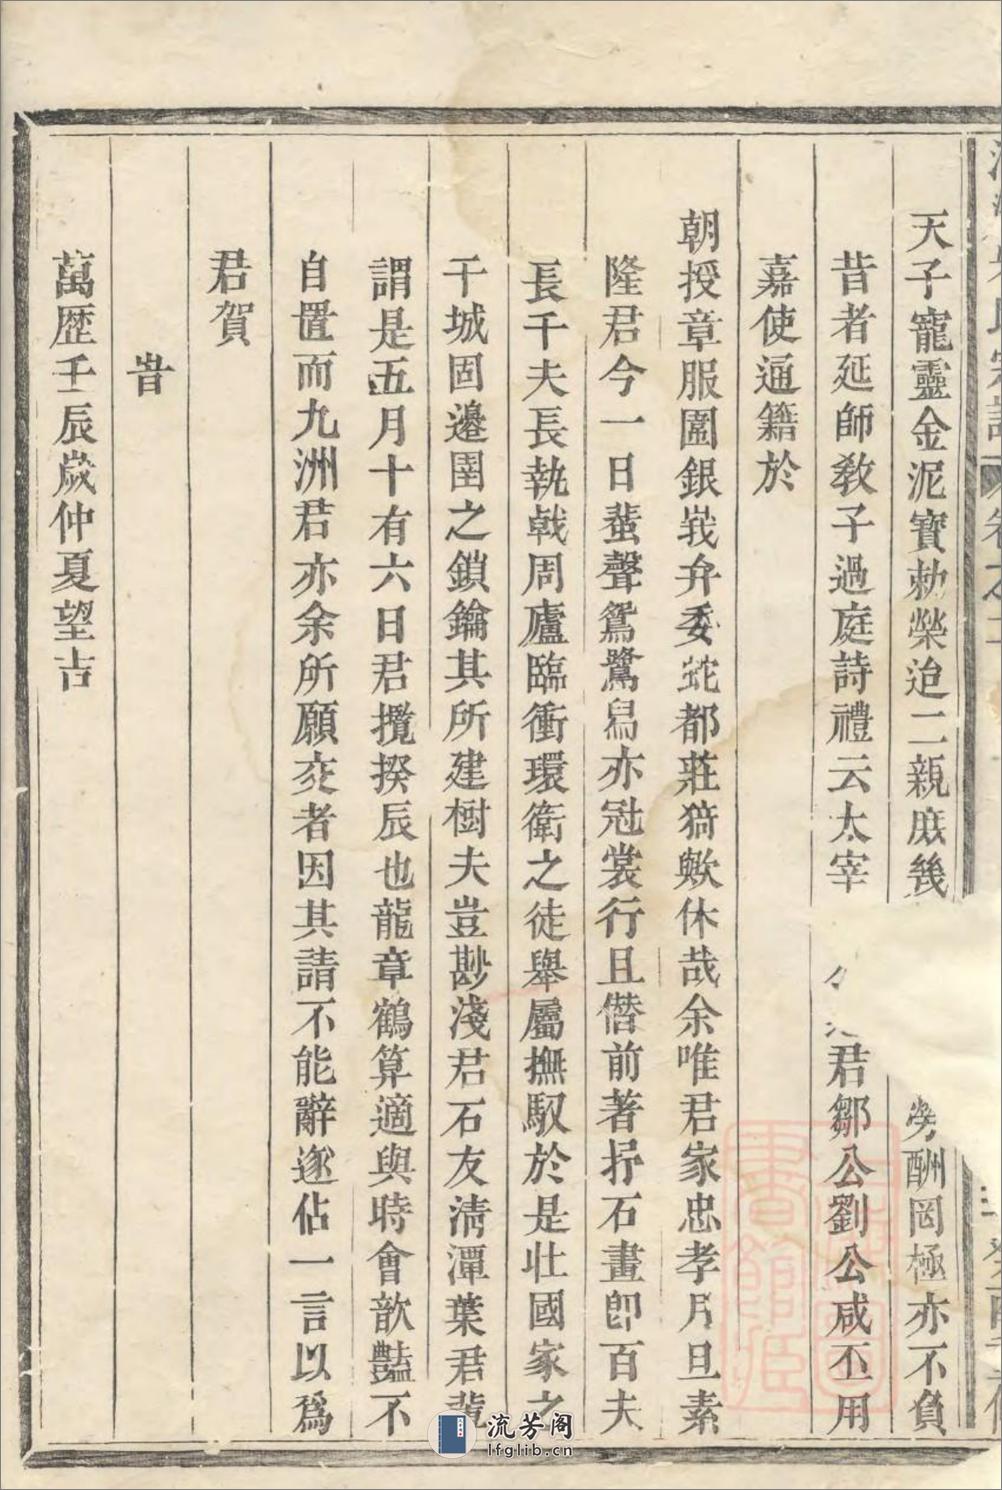 天子寵靈金泥寶勅榮迨二親庶幾勞酬罔極亦不負
昔者延師教子過庭詩禮云太宰君鄒公劉公咸丕用
嘉使通籍於
朝授章服圍銀峩弁委蛇都莊猗歟休哉余唯君家忠孝月旦素
隆君今一日蜚聲鴛鷺舄亦冠裳行且僭前著抒石畫卽百夫
長千夫長執戟周廬臨衝環衛之徒舉屬撫馭於是壯國家之
干城固邉圉之鎖鑰其所建樹夫豈尠淺君石友清潭葉君輩
謂是五月十有六日君攬揆辰也龍章鶴算適與時會歆豔不
自置而九洲君亦余所願交者因其請不能辭遂佔一言以爲
君賀
旹
萬歷壬辰歲仲夏望吉
流芳阁
lfglib.cn